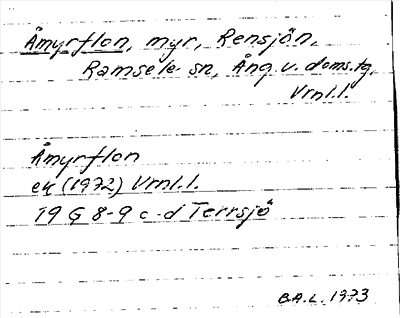 Åmyrflon, myr, Rensjön,
Ramsele sn, Ång. v. doms.tg,
Vrnl.l.
Åmyrflon
ek (1972) Vrnl.l.
19 G 8-9 c-d Terrsjö
B.A.L. 1973